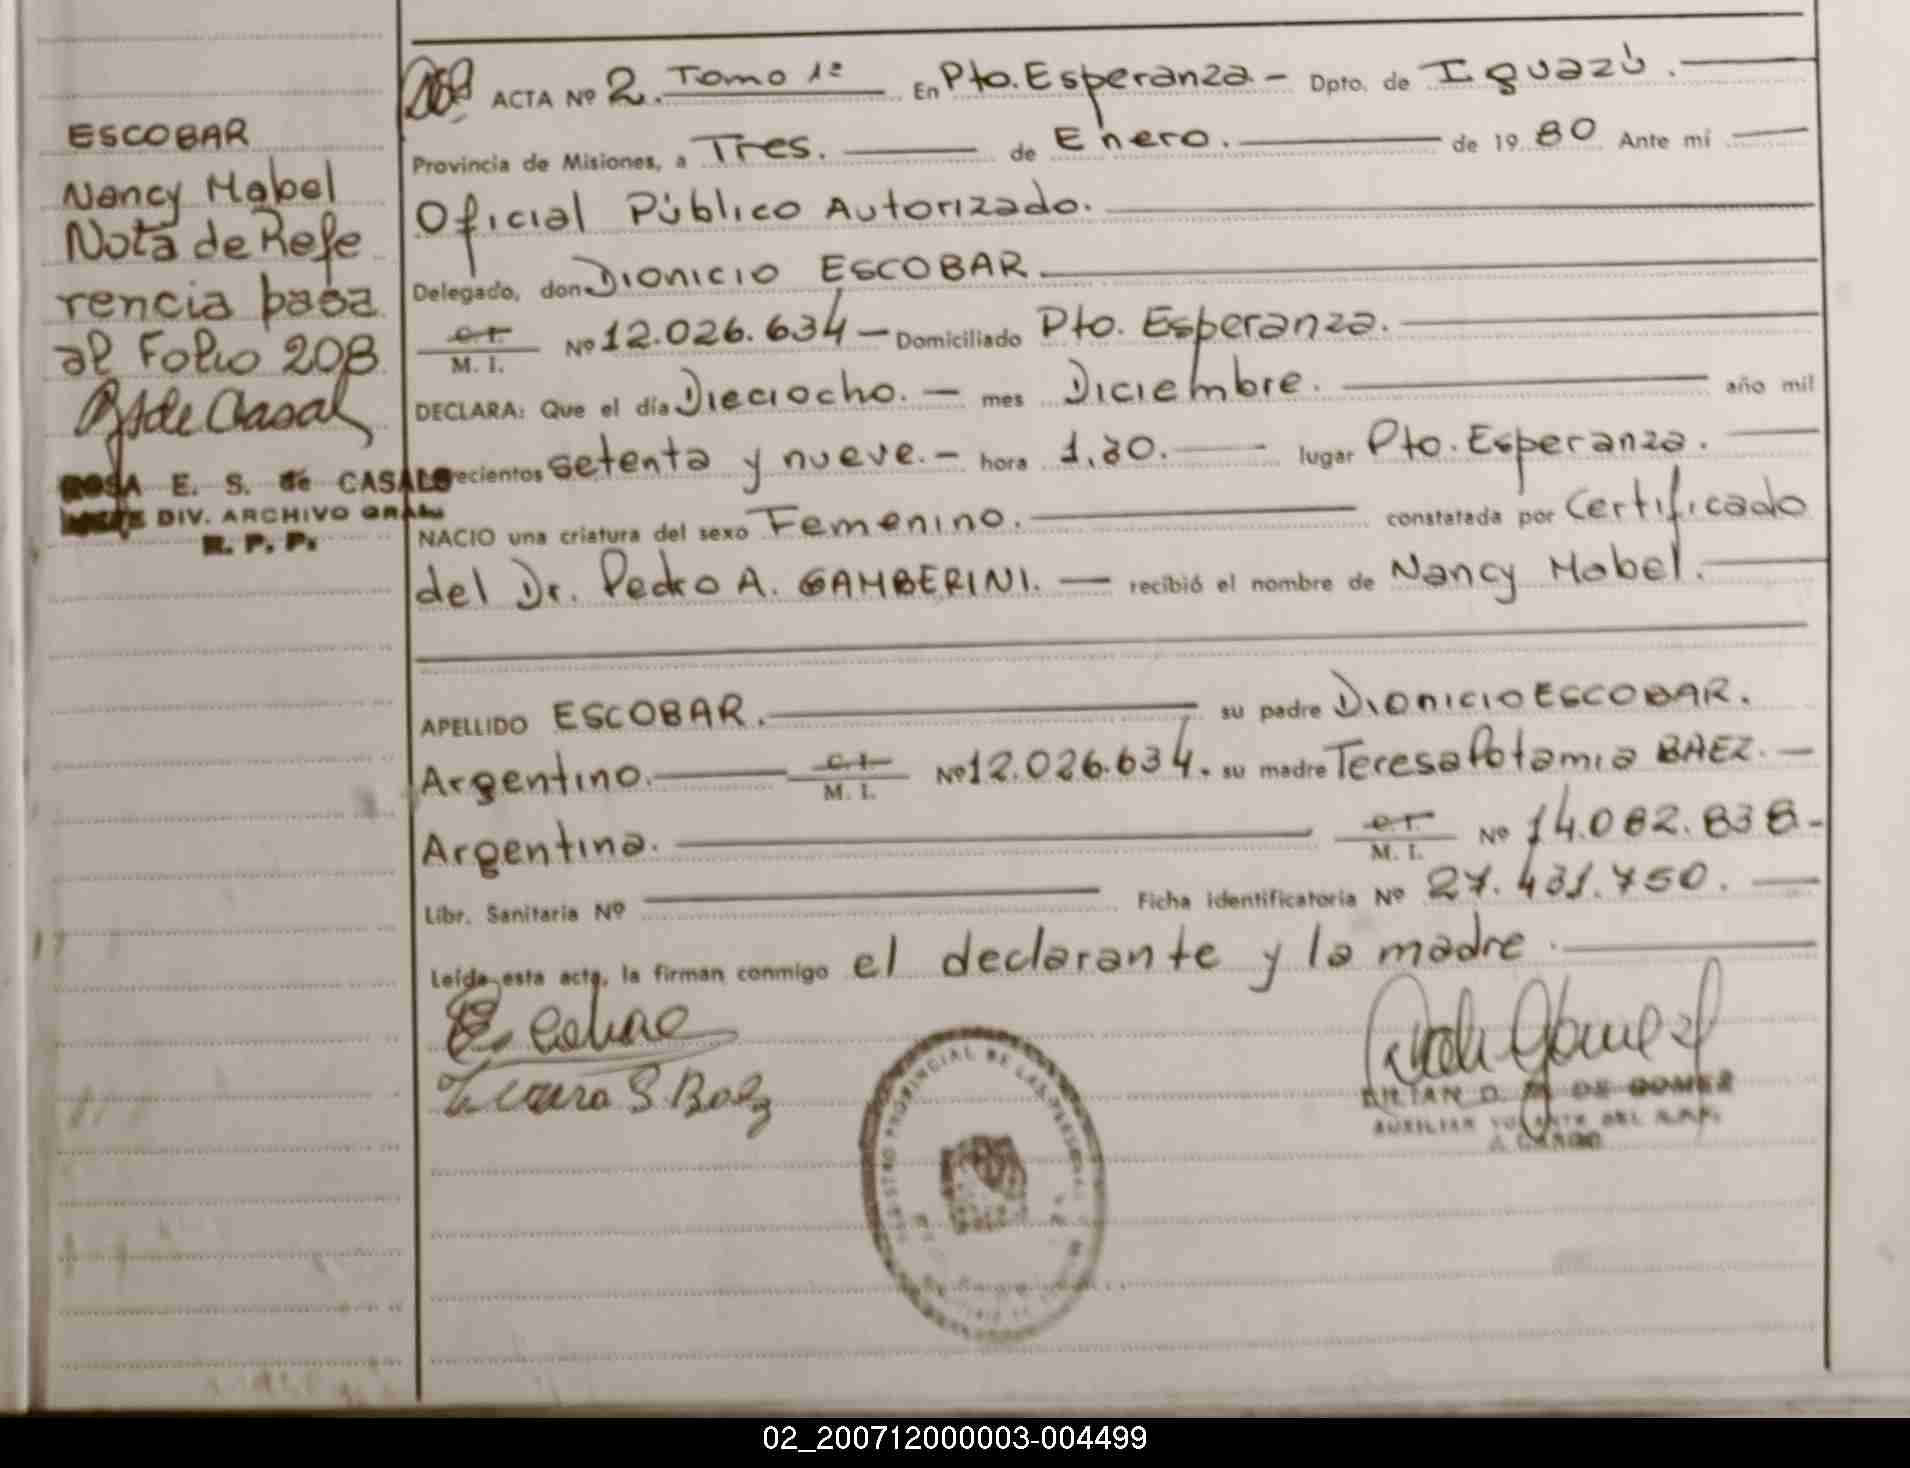 ESCOBAR
Nancy Mabel
Nota de Refe
rencia pasa
al Folio 208
ROSA E. S. de CASALS
DIV. ARCHIVO GRAL.
R. P. P.
ACTA Nº 2. Tomo 1º En Pto. Esperanza - Dpto. de Iguazú.
Provincia de Misiones, a Tres. de Enero. de 19 80 Ante mí
Oficial Público Autorizado.
Delegado, don Dionicio ESCOBAR
C.I. M. I. Nº 12.026.634 - Domiciliado Pto. Esperanza.
DECLARA: Que el día Dieciocho. - mes Diciembre. año mil
novecientos setenta y nueve. - hora 1,30. lugar Pto. Esperanza.
NACIO una criatura del sexo Femenino. constatada por Certificado
del Dr. Pedro A. GAMBERINI. - recibió el nombre de Nancy Mabel.
APELLIDO ESCOBAR. su padre Dionicio ESCOBAR.
Argentino. C.I. M. I. Nº 12.026.634. su madre Teresa Potamia BAEZ. -
Argentina. C.I. M. I. Nº 14.082.838 -
Libr. Sanitaria Nº Ficha identificatoria Nº 27.431.750.
Leída esta acta, la firman conmigo el declarante y la madre.
S. Baez
D. M. DE GOMEZ
AUXILIAR VOLANTE DEL R.P.P.
A CARGO
REGISTRO PROVINCIAL DE LAS PERSONAS
02_200712000003-004499